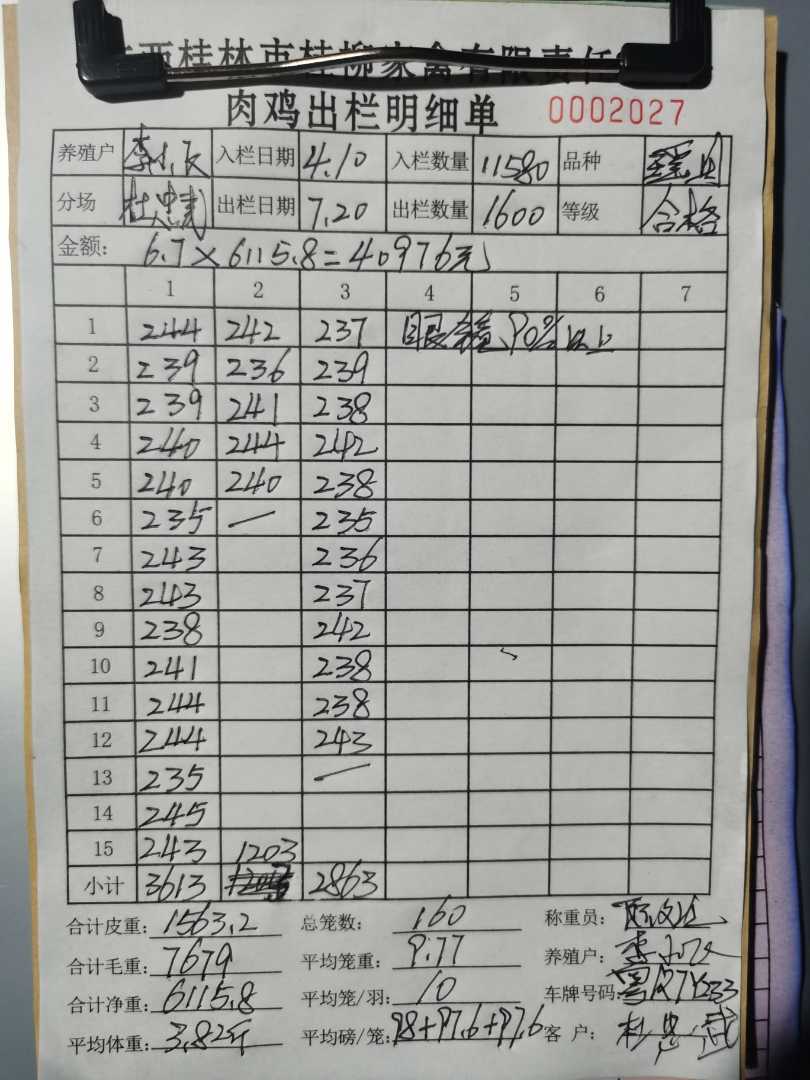 西桂林市桂柳家禽有限责任
肉鸡出栏明细单 0002027
养殖户 入栏日期 4.10 入栏数量 11580 品种
分场 杜忠武 出栏日期 7.20 出栏数量 1600 等级 合格
金额: 6.7×6115.8=40976元
1 2 3 4 5 6 7
1 244 242 237 90%以上
2 239 236 239
3 239 241 238
4 240 244 242
5 240 240 238
6 235 — 235
7 243 236
8 243 237
9 238 242
10 241 238
11 244 238
12 244 243
13 235 —
14 245
15 243 1203
小计 3613 2863
合计皮重: 1563.2 总笼数: 160 称重员:
合计毛重: 7679 平均笼重: 9.77 养殖户:
合计净重: 6115.8 平均笼/羽: 10 车牌号码:
平均体重: 3.82斤 平均磅/笼: 98+97.6+97.6 客 户: 杜忠武